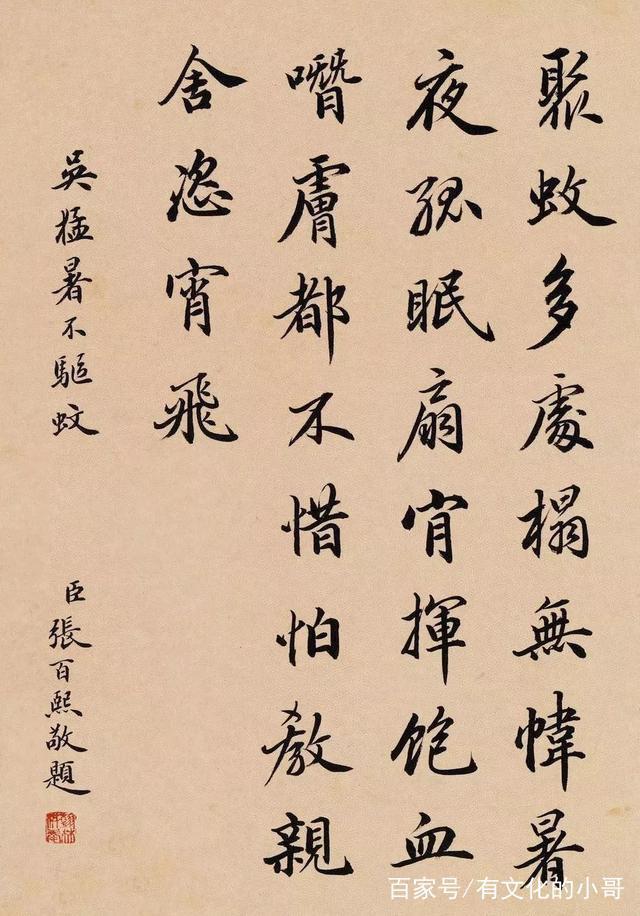 聚蚊多處榻無幃暑
夜孤眠扇肯揮飽血
噆膚都不惜怕教親
舍恣宵飛
吳猛暑不驅蚊
臣張百熙敬題
百家号/有文化的小哥